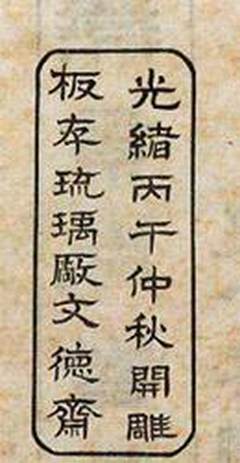 光緒丙午仲秋開雕
板存琉璃厰文德齋